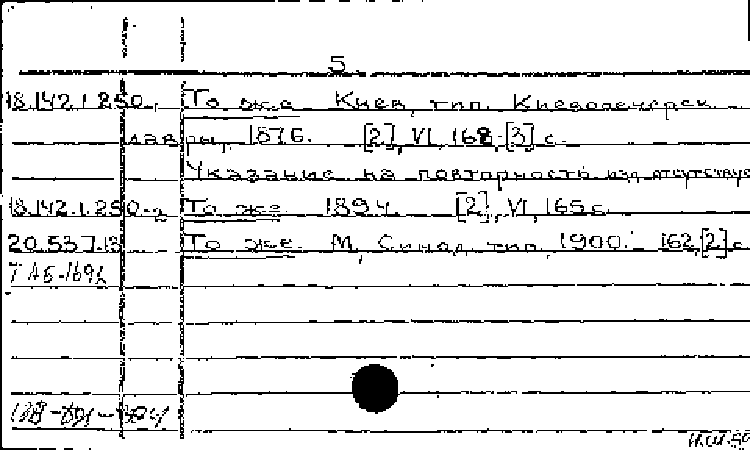 5
18.142.1.250-1 То же Киев, тип. Киевопечерск.
лавры, 1876. [2], VI, 168, [3] с.
Указание на повторность изд. отсутствуе
18.142.1.250-2 То же 1894. [2], VI, 165 с.
20.537.13 То же. М., Синод. тип. 1900. 162, [2] с.